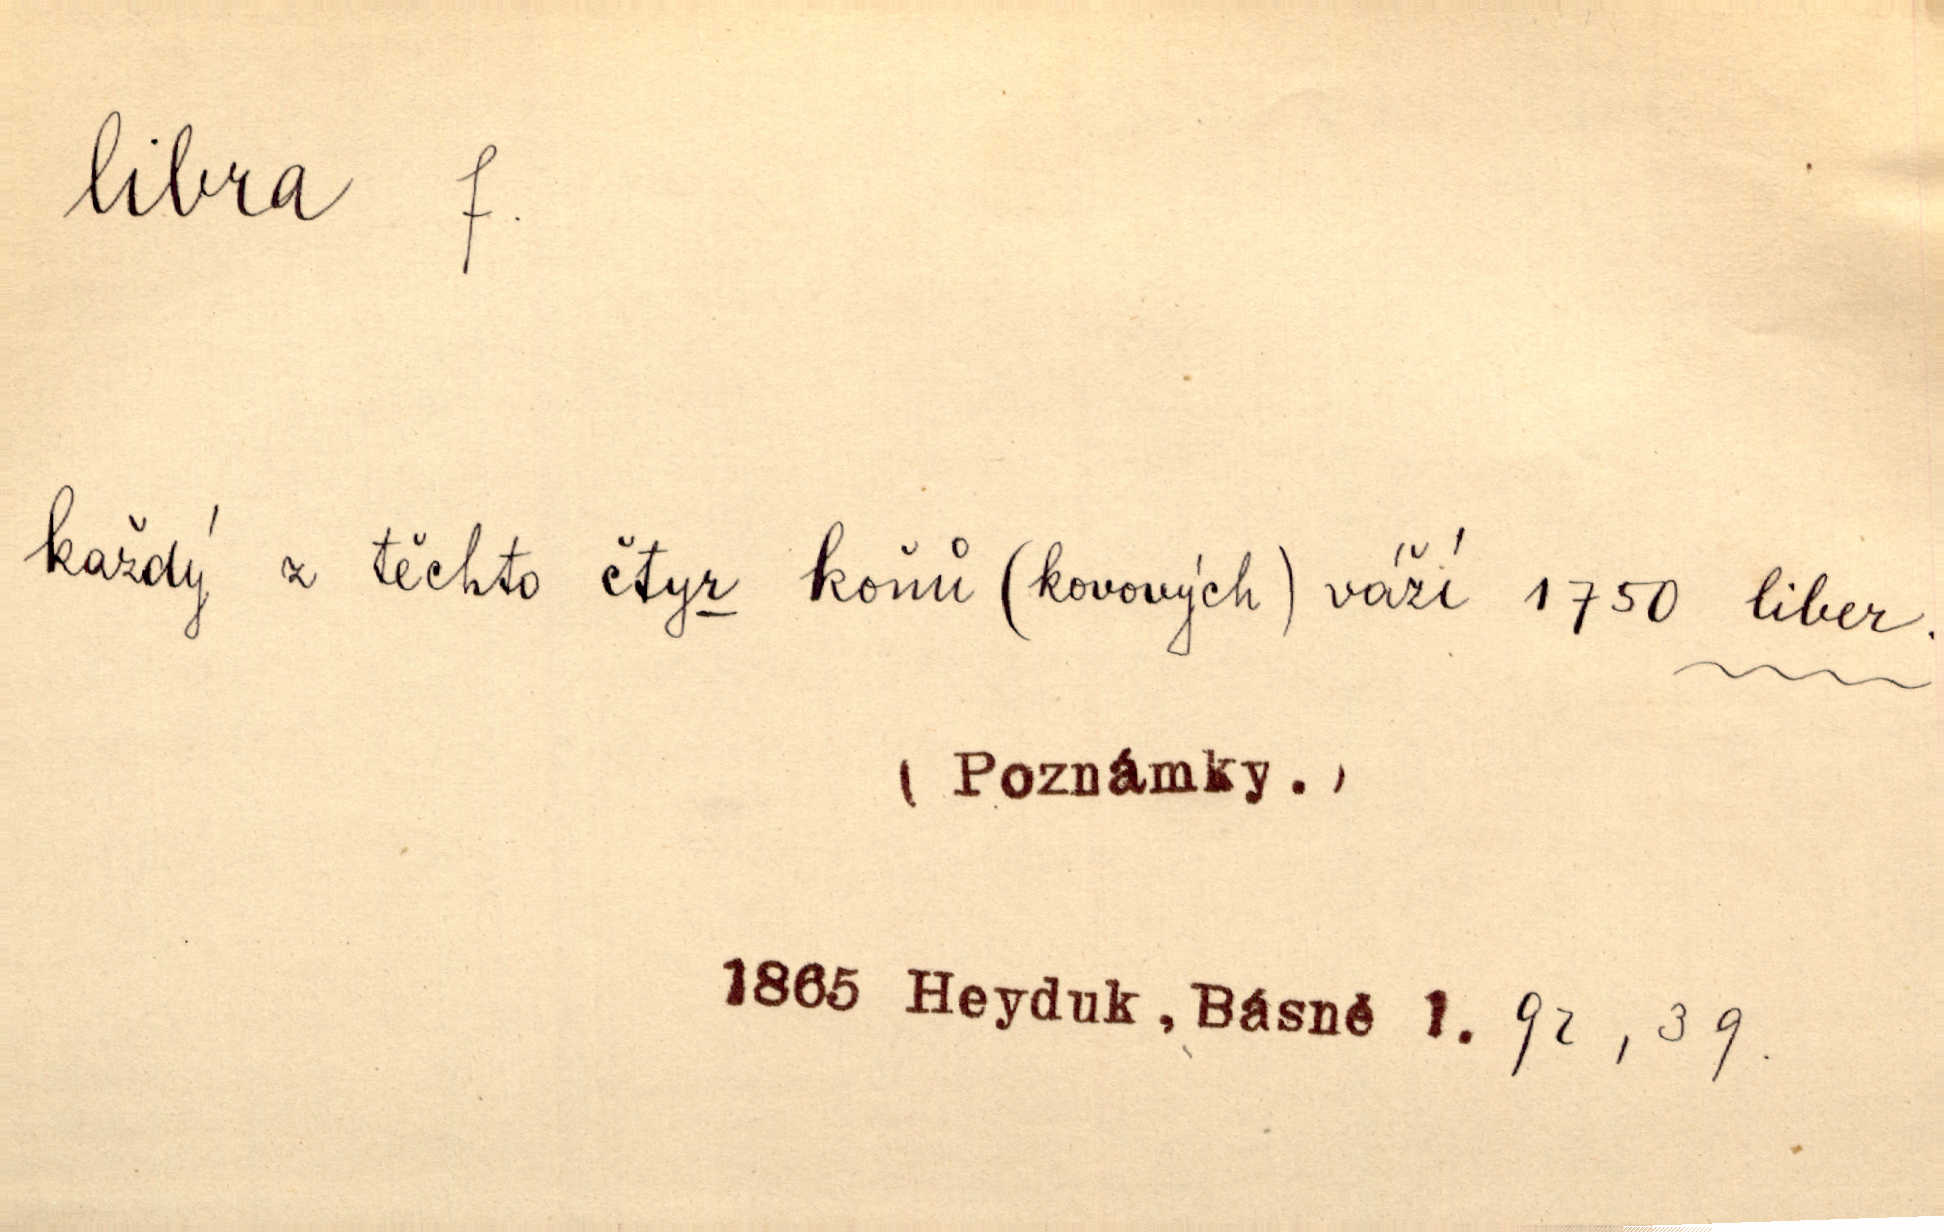 libra f.
každý z těchto čtyr koňů (kovových) váží 1750 liber.
( Poznámky. )
1865 Heyduk, Básně 1. 92, 39.